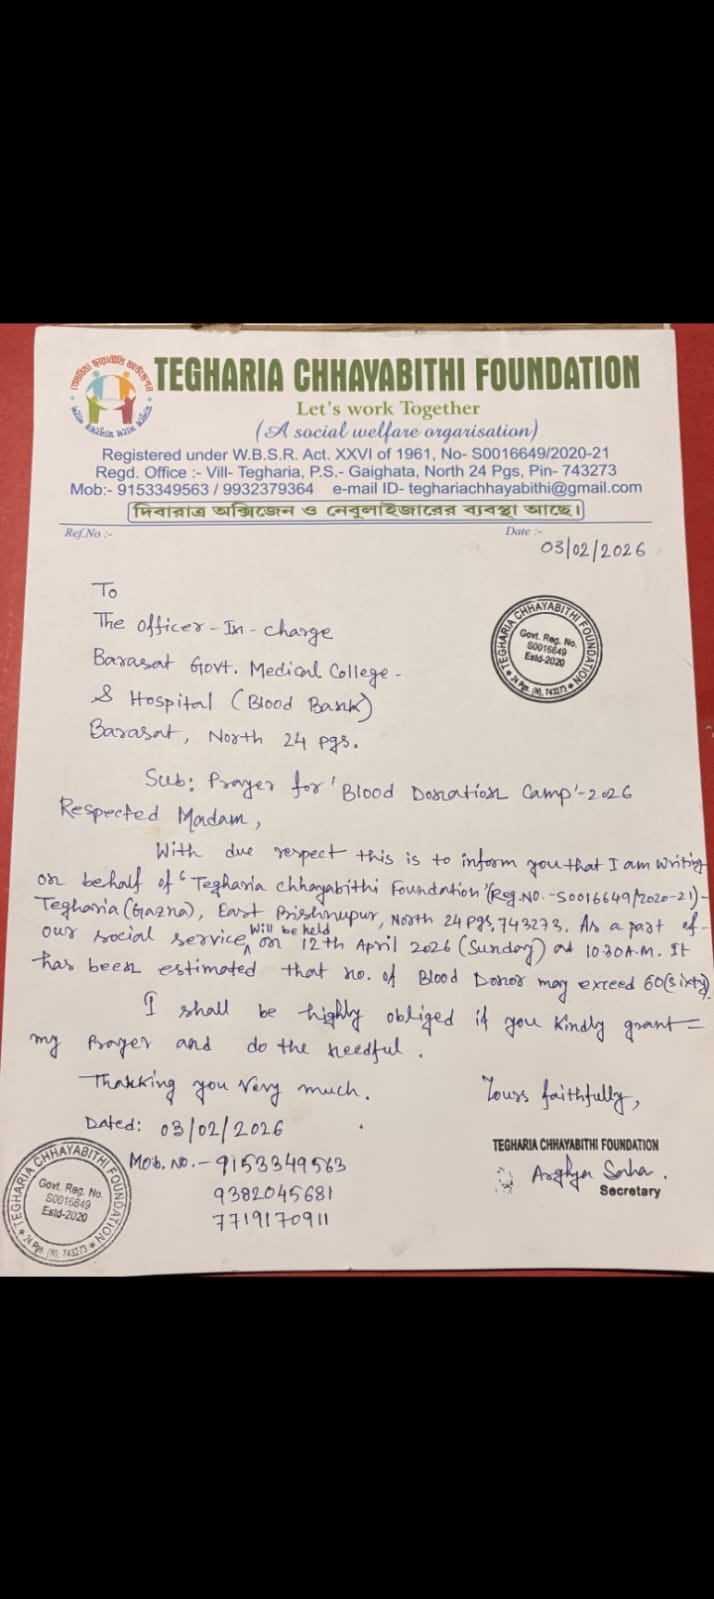 TEGHARIA CHHAYABITHI FOUNDATION
Let's work Together
(A social welfare orgarisation)
Registered under W.B.S.R. Act. XXVI of 1961, No- S0016649/2020-21
Regd. Office :- Vill- Tegharia, P.S.- Gaighata, North 24 Pgs, Pin- 743273
Mob:- 9153349563 / 9932379364 e-mail ID- teghariachhayabithi@gmail.com
দিবারাত্র অক্সিজেন ও নেবুলাইজারের ব্যবস্থা আছে।
Ref.No :-
Date :-
03/02/2026
To
The Officer-In-charge
Barasat Govt. Medical College-
& Hospital (Blood Bank)
Barasat, North 24 pgs.
TEGHARIA CHHAYABITHI FOUNDATION
Govt. Reg. No.
S0016649
Estd-2020
24 Pgs. (N), 743273
Sub: Prayer for 'Blood Donation Camp'-2026
Respected Madam,
With due respect this is to inform you that I am writing
on behalf of 'Tegharia Chhayabithi Foundation'(Reg.NO.-S0016649/2020-21)-
Tegharia (Gazna), East Bishnupur, North 24 Pgs, 743273. As a part of-
our social service, will be held on 12th April 2026 (Sunday) at 10:30A.M. It
has been estimated that no. of Blood Donor may exceed 60(sixty).
I shall be highly obliged if you kindly grant=
my Prayer and do the needful.
Thanking you very much.
Yours faithfully,
Dated: 03/02/2026
Mob. No.- 9153349563
9382045681
7719170911
TEGHARIA CHHAYABITHI FOUNDATION
Arghya Saha.
Secretary
TEGHARIA CHHAYABITHI FOUNDATION
Govt. Reg. No.
S0016649
Estd-2020
24 Pgs. (N), 743273